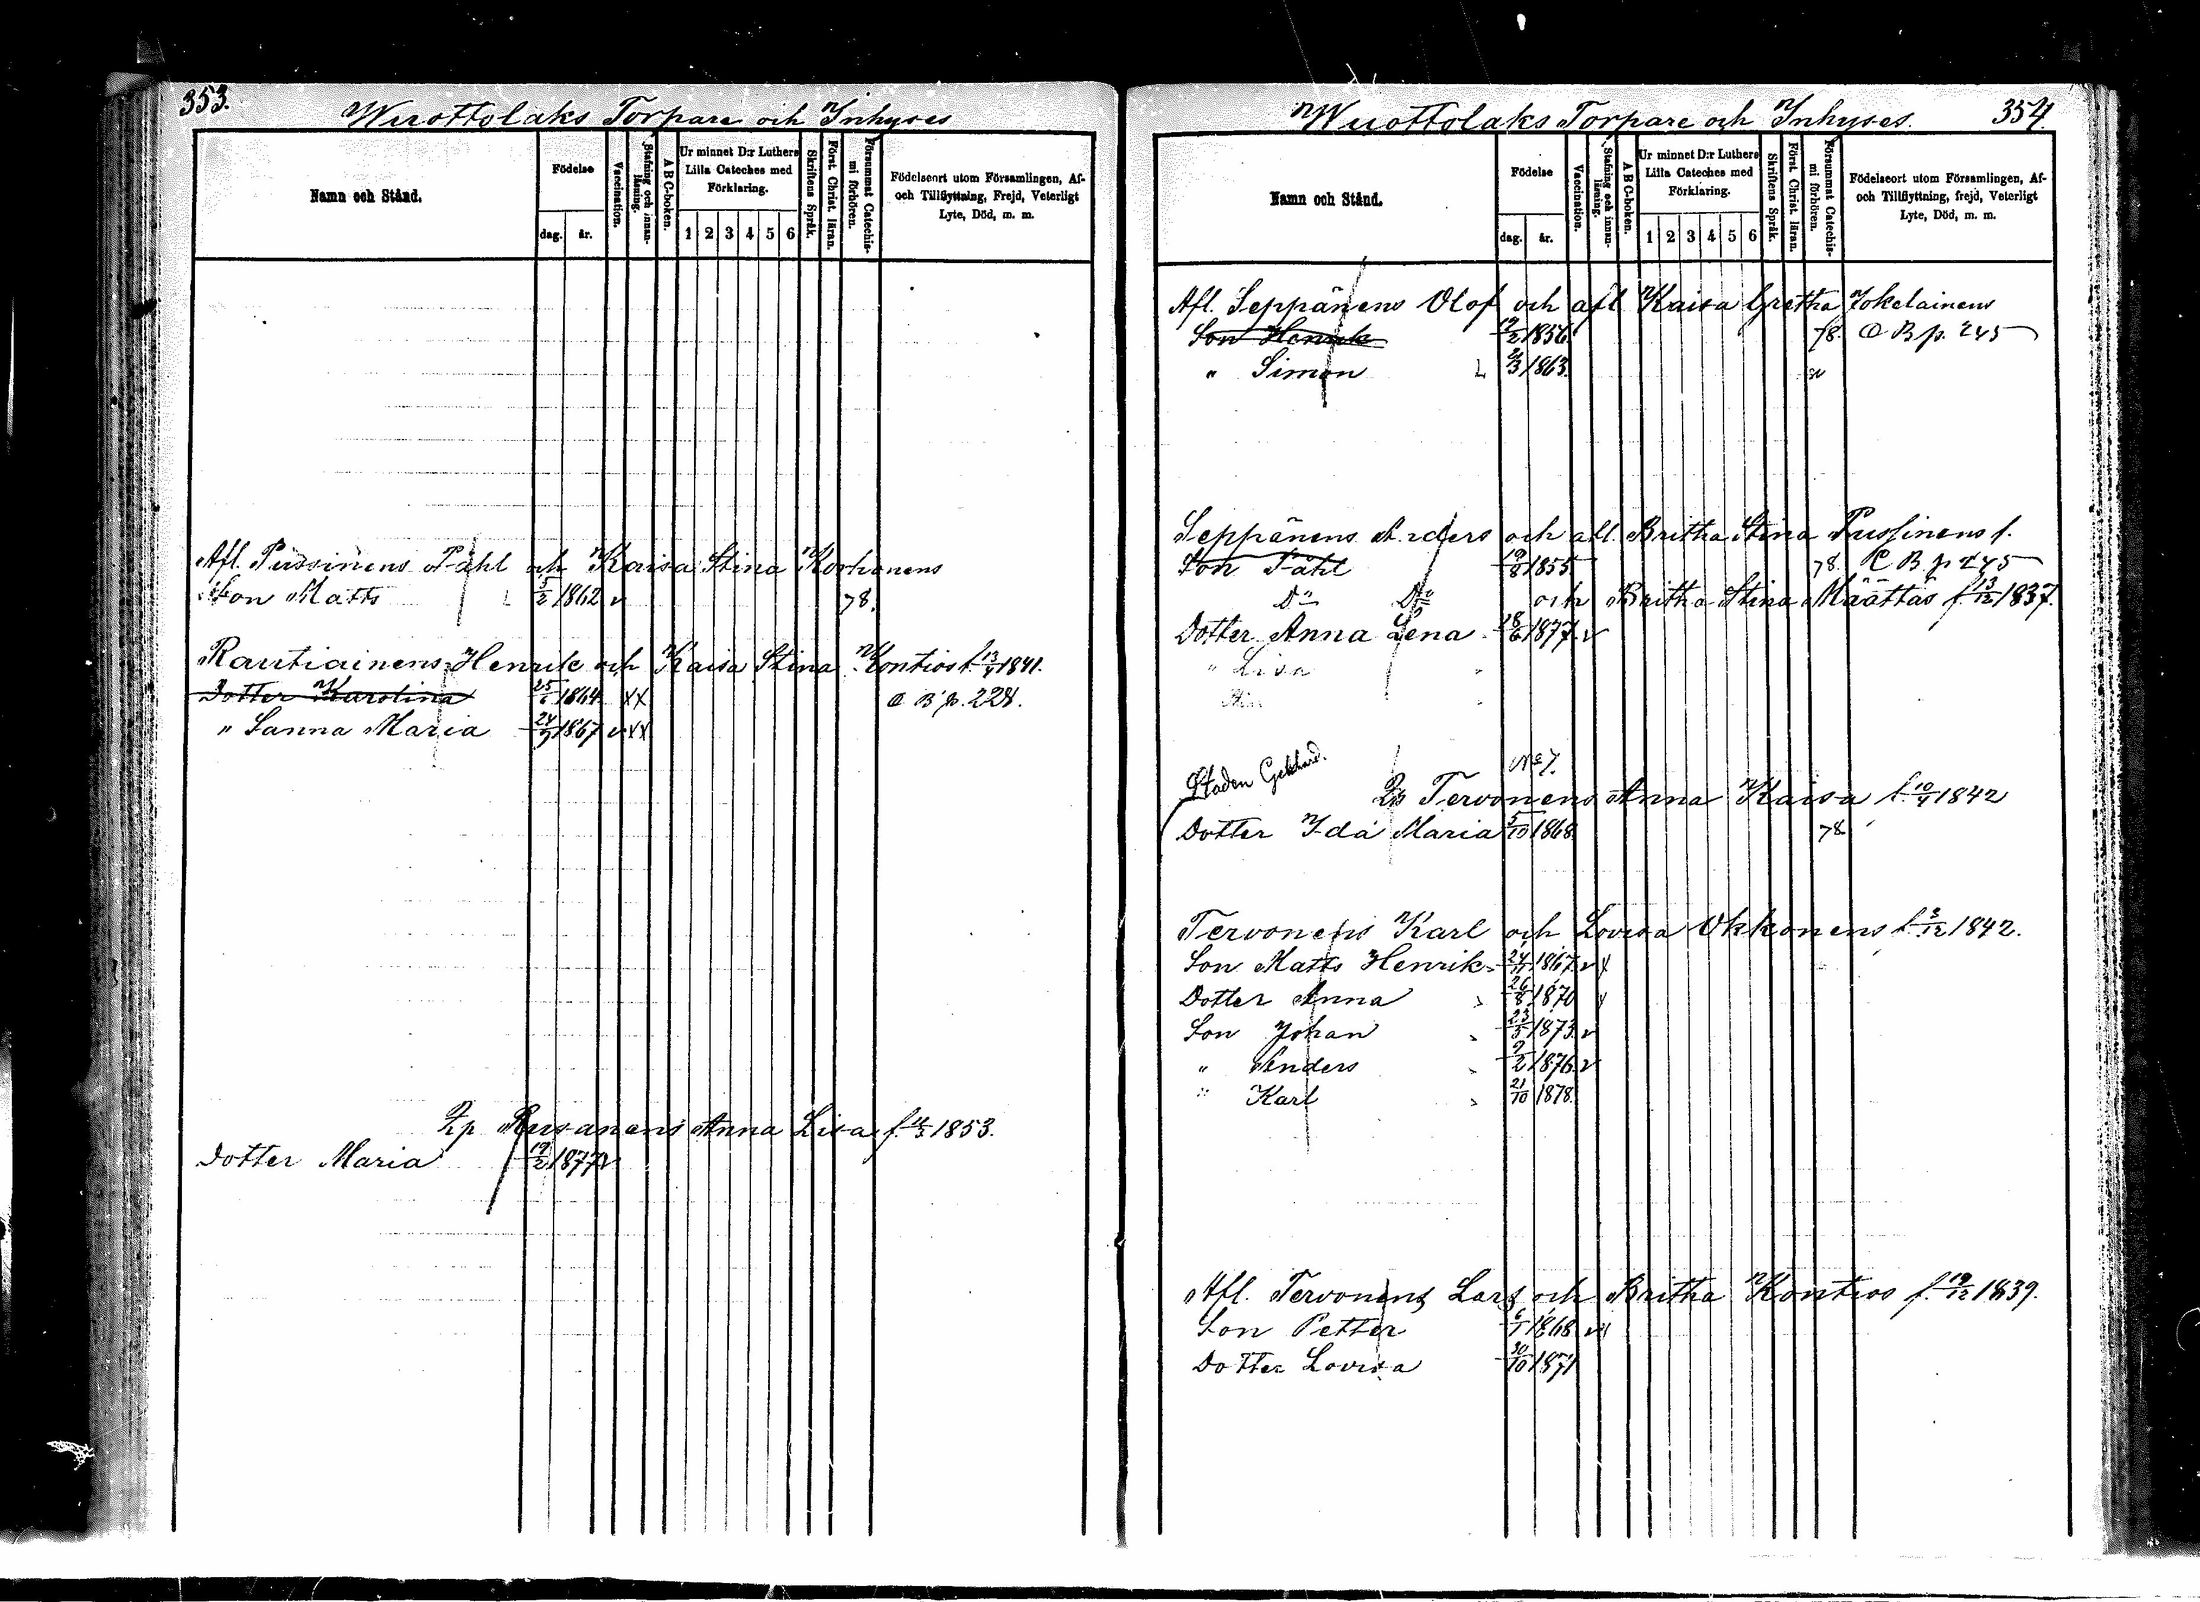 353.
Wuottolaks Torpare och Inhyses
Namn och Stånd.
Födelse
dag.
år.
Vaccination.
Stafning och innanläsning.
A B C-boken.
Ur minnet D:r Luthers Lilla Cateches med Förklaring.
1 2 3 4 5 6
Skriftens Språk.
Först. Christ. läran.
Försummat Catechismi förhören.
Födelseort utom Församlingen, Af-
och Tillflyttning, Frejd, Veterligt
Lyte, Död, m. m.
Afl. Pussinens Påhl och Kaisa Stina Korhonens
Son Matts 5/2 1862 v 78.
Rautiainens Henrik och Kaisa Stina Kontios f. 13/4 1841.
Dotter Karolina 25/6 1864 xx C B p. 228.
" Sanna Maria 24/9 1867 v xx
Pp Rusanens Anna Lisa f. 11/3 1853.
Dotter Maria 19/2 1877 v
354.
Wuottolaks Torpare och Inhyses.
Namn och Stånd.
Födelse
dag.
år.
Vaccination.
Stafning och innanläsning.
A B C-boken.
Ur minnet D:r Luthers Lilla Cateches med Förklaring.
1 2 3 4 5 6
Skriftens Språk.
Först. Christ. läran.
Försummat Catechismi förhören.
Födelseort utom Församlingen, Af-
och Tillflyttning, frejd, Veterligt
Lyte, Död, m. m.
Afl. Seppänens Olof och afl. Kaisa Gretha Jokelainens
Son Henrik 19/2 1856 78. C B p. 245
" Simon 3 1863.
Seppänens Anders och afl. Britha Stina Pussinens f.
Son Påhl 19/8 1855 78. C B p 245
Do Do och Britha Stina Määttäs f. 13/12 1837.
Dotter Anna Lena 18/6 1877 v
" Lisa
Staden Gebhard.
No 7.
Pp Tervonens Anna Kaisa f. 10/4 1842
Dotter Ida Maria 5/10 1868 78
Tervonens Karl och Lovisa Okkonens f. 3/12 1842.
Son Matts Henrik 24/11 1867 v x
Dotter Anna 26/8 1870
Son Johan 23/3 1873 v
" Anders 9/2 1876 v
" Karl 21/10 1878.
Afl. Tervonens Lars och Britha Kontios f. 19/12 1839.
Son Petter 6/1 1868 v x
Dotter Lovisa 30/10 1871